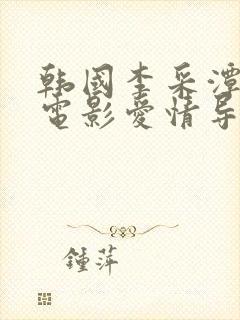 韩国李采潭
电影爱情导
锺萍